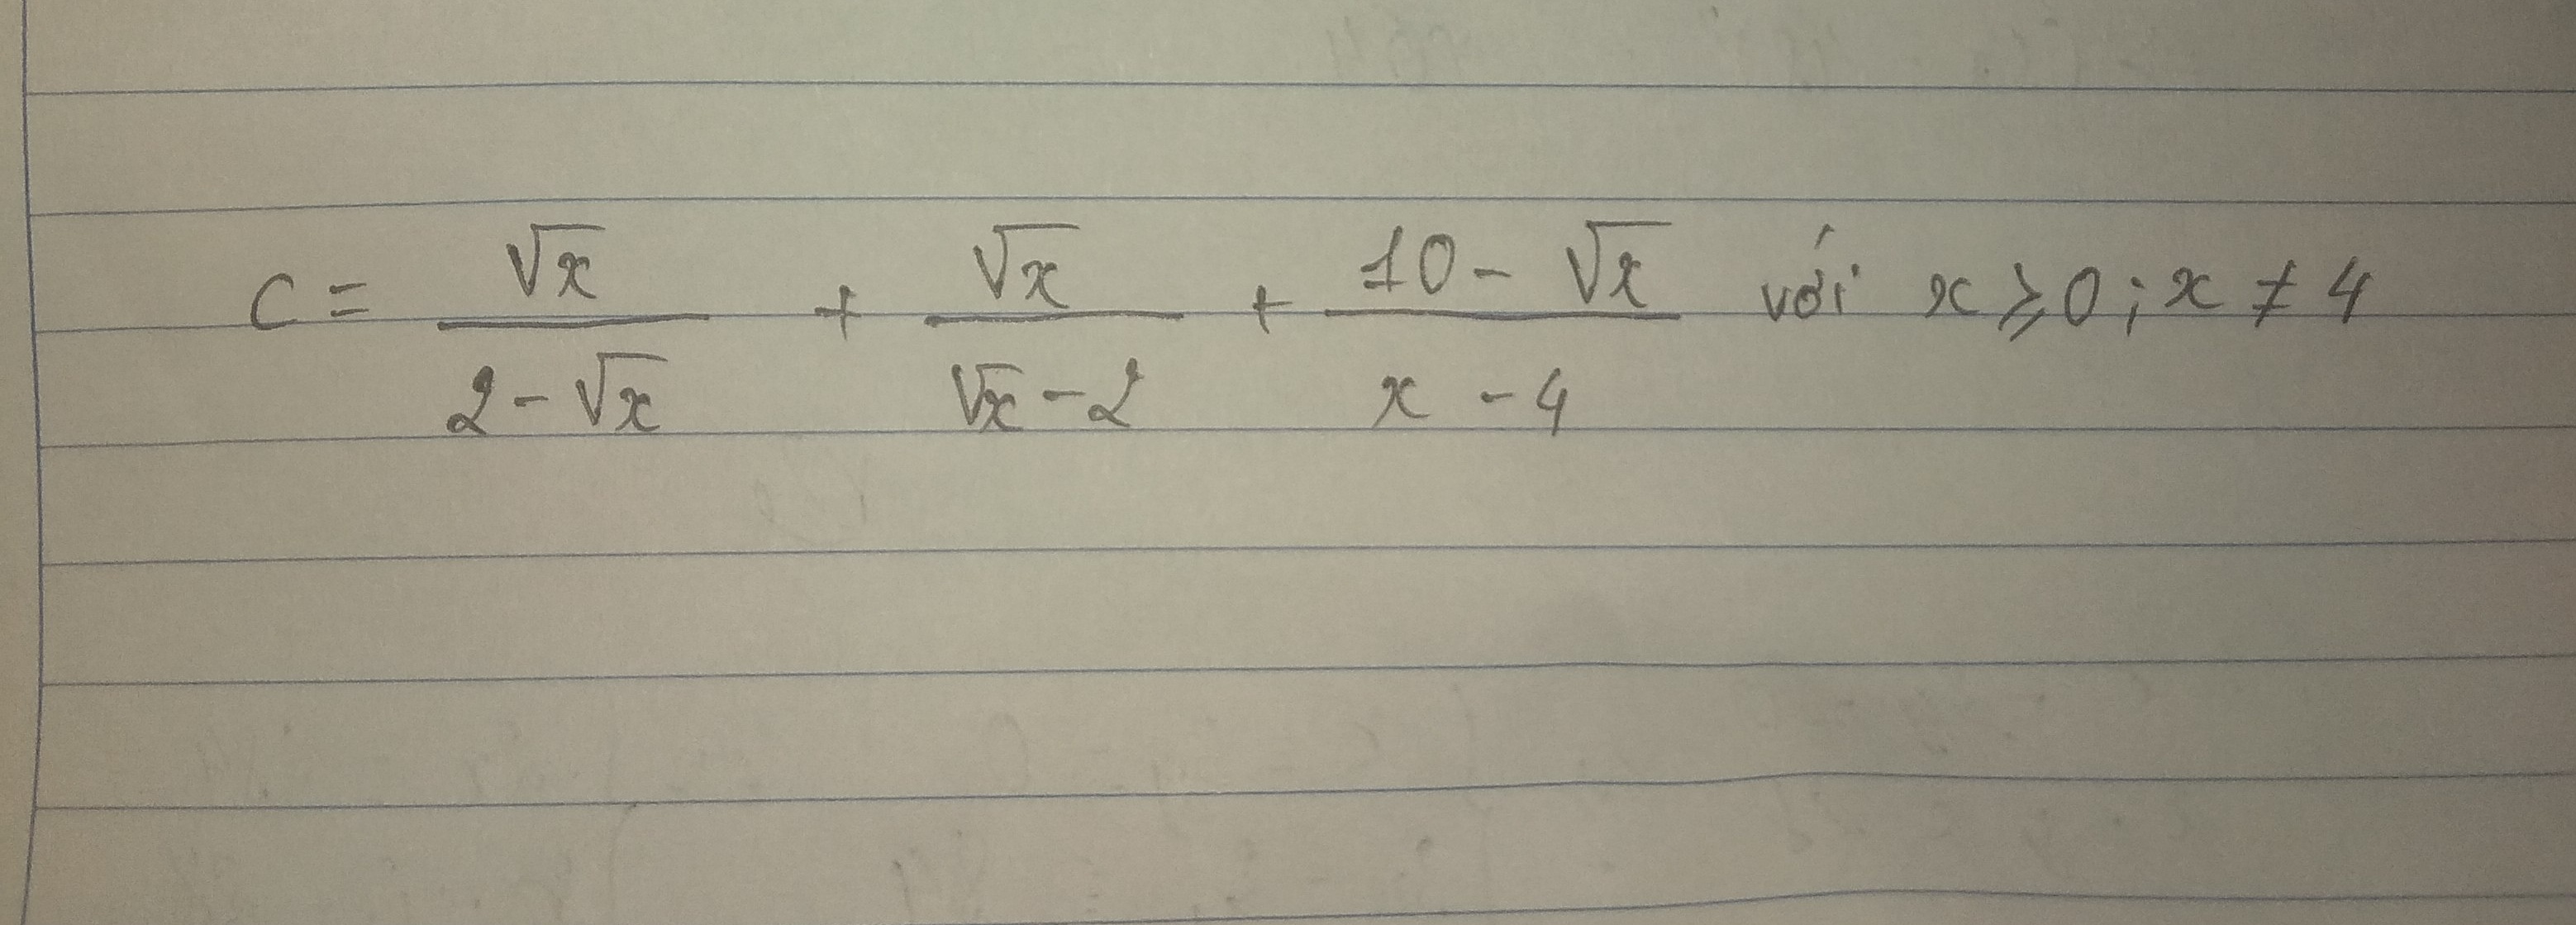 C = \frac{\sqrt{x}}{2 - \sqrt{x}} + \frac{\sqrt{x}}{\sqrt{x} - 2} + \frac{10 - \sqrt{x}}{x - 4} với x ⩾ 0 ; x ≠ 4